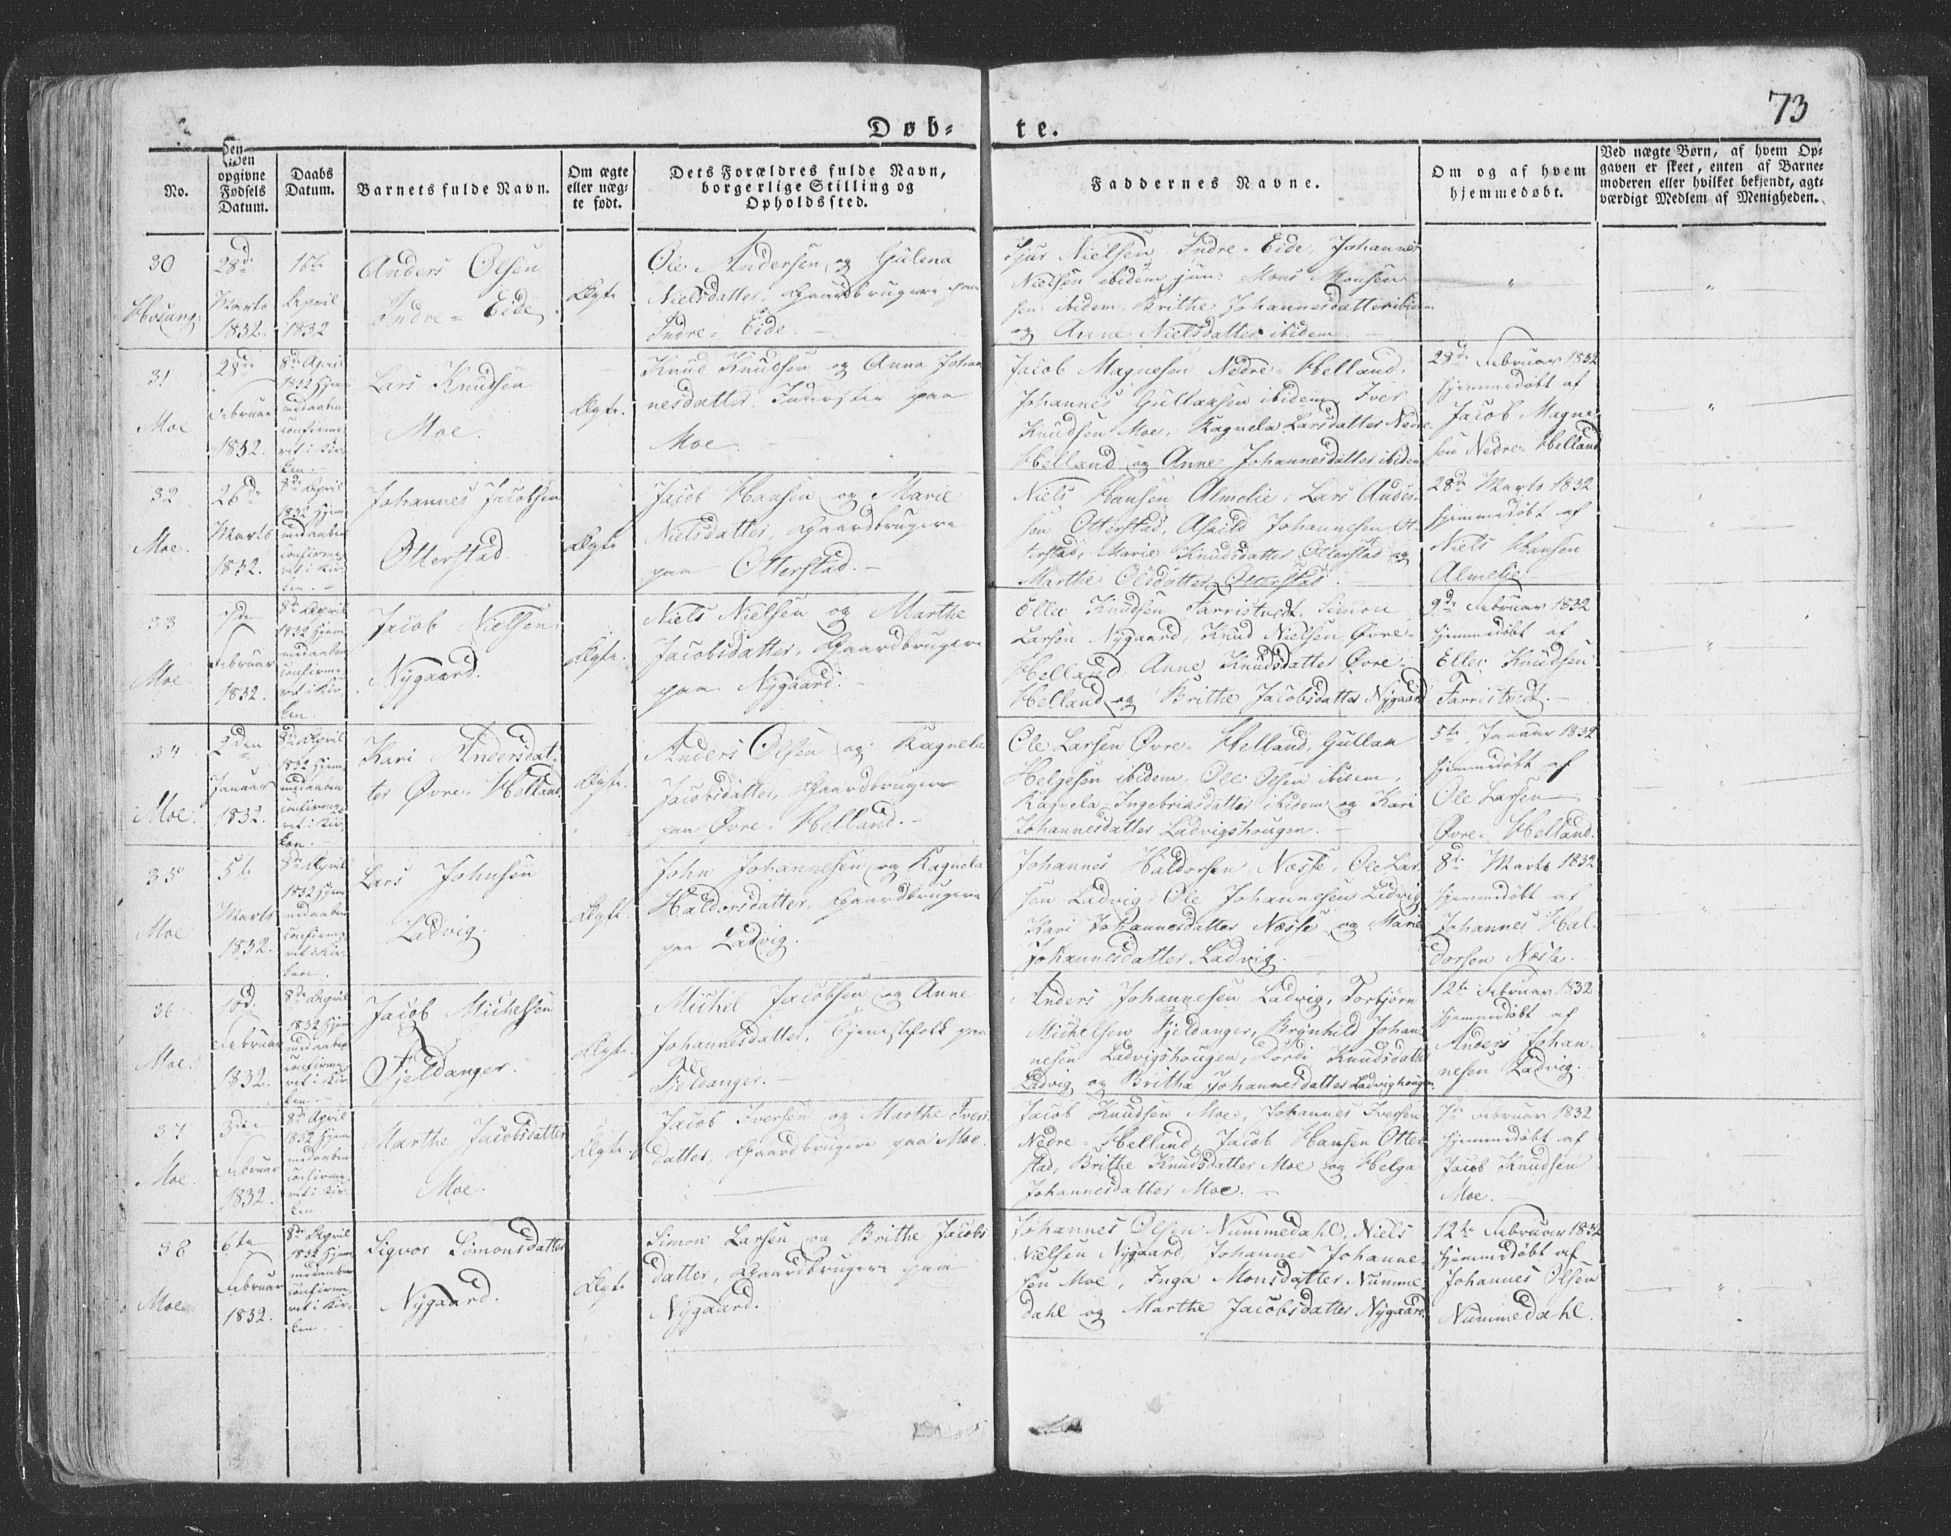 73
Døb-
te.
No.
Den
opgivne
Fødsels
Datum.
Daabs
Datum.
Barnets fulde Navn.
Om ægte
eller uæg-
te født.
Dets Forældres fulde Navn,
borgerlige Stilling og
Opholdssted.
Faddernes Navne.
Om og af hvem
hjemmedøbt.
Ved uægte Børn, af hvem Op-
gaven er skeet, enten af Barne-
moderen eller hvilket bekjendt, agt-
værdigt Medlem af Menigheden.
30
Hosang.
28de
Marts
1832.
16te
April
1832
Anders Olsen
Indre-Eide
Ægte
Ole Andersen og Gulena
Nielsdatter, Gaardbrugere paa
Indre-Eide.
Sjur Nielsen Indre-Eide, Johannes
Nielsen ibidem jun: Mons Monsen
sen ibidem, Brithe Johannesdatter ibidem
og Anne Nielsdatter ibidem
31
Moe
28de
Februar
1832.
8de April
1832 hjem
medaaben
confirme-
ret i Kir-
ken.
Lars Knudsen
Moe.
Ægte.
Knud Knudsen og Anna Johan
nesdatter Inderster paa
Moe
Jacob Magnesen Nedre-Helland.
Johannes Gullaksen ibidem, Iver
Knudsen Moe, Ragnela Larsdatter Nedre-
Helland og Anne Johannesdatter ibidem
28de Februar 1832
hjemmedøbt af
Jacob Magne-
sen Nedre-Helland
32
Moe.
26de
Marts
1832.
8de April
1832 hjem
medaaben
confirme-
ret i Kir-
ken.
Johannes Jacobsen
Otterstad.
Ægte
Jacob Hansen og Marie
Nielsdatter, Gaardbrugere
paa Otterstad.
Niels Hansen Almelie, Lars Anders-
sen Otterstad, Johannesen Ot-
terstad, Marie Knudsdatter Otterstad og
Marthe Olsdatter Otterstad.
28de Marts 1832
hjemmedøbt af
Niels Hansen
Almelie
33
Moe
Februar
1832.
8de April
1832 hjem
medaaben
confirme-
ret i Kir-
ken.
Jacob Nielsen
Nygaard.
Ægte.
Niels Nielsen og Marthe
Jacobsdatter, Gaardbrugere
paa Nygaard.
Ellec Knudsen Farristvedt, Simon
Larsen Nygaard, Knud Nielsen Øvre-
Helland Anne Knudsdatter Øvre-
Helland og Brithe Jacobsdatter Nygaard
9de Februar 1832
hjemmedøbt af
Ellec Knudsen
Farristvedt.
34
Moe.
2den
Januar
1832.
8de April
1832 hjem
medaaben
confirme-
ret i Kir-
ken.
Kari Andersdat-
ter Øvre-Helland.
Ægte.
Anders Olsen og Ragnela
Jacobsdatter, Gaardbrugere
paa Øvre-Helland.
Ole Larsen Øvre-Helland, Gullak
Helgesen ibidem, Ole Olsen ibidem,
Ragnela Ingebrigtsdatter ibidem og Kari
Johannesdatter Ladvigshougen.
5te Januar 1832
hjemmedøbt af
Ole Larsen
Øvre-Helland.
35
Moe
5te
Marts
1832.
8de April
1832 hjem
medaaben
confirme-
ret i Kir-
ken.
Lars Johnsen
Ladvig.
Ægte.
John Johannesen og Ragnela
Haldorsdatter, Gaardbrugere
paa Ladvig.
Johannes Haldorsen Næsse, Ole Lar-
sen Ladvig, Ole Johannesen Ladvig
Kari Johannesdatter Næsse og Marie
Johannesdatter Ladvig.
8de Marts 1832
hjemmedøbt af
Johannes Hal-
dorsen Næsse.
36
Moe.
10de
Februar
1832.
8de April
1832 hjem
medaaben
confirme-
ret i Kir-
ken.
Jacob Michelsen
Fjeldanger.
Ægte.
Michel Jacobsen og Anne
Johannesdatter, Tjenestefolk paa
Fjeldanger.
Anders Johannesen Ladvig, Torbjørn
Michelsen Fjeldanger, Brynhild Johan-
nesen Ladvigshougen, Dordi Knudsdatter
Ladvig og Britha Johannesdatter Ladvighougen.
12te Februar 1832
hjemmedøbt af
Anders Johan-
nesen Ladvig.
37
Moe.
3die
Februar
1832.
8de April
1832 hjem
medaaben
confirme-
ret i Kir-
ken
Marthe Jacobsdatter
Moe.
Ægte.
Jacob Iversen og Marthe Ivers
datter, Gaardbrugere paa Moe.
Jacob Knudsen Moe, Johannes Iversen
Nedre-Helland, Jacob Hansen Otter-
stad, Brithe Knudsdatter Moe og Helga
Johannesdatter Moe.
7de Februar 1832
hjemmedøbt af
Jacob Knudsen
Moe.
38
Moe
6te
Februar
1832.
8de April
1832 hjem
medaaben
confirme-
ret i Kir-
ken
Sigvor Simonsdatter
Nygaard.
Ægte
Simon Larsen og Brithe Jacobs
datter, Gaardbrugere paa
Nygaard.
Johannes Olsen Nummedahl, Niels
Nielsen Nygaard, Johannes Johanne-
sen Moe, Inga Monsdatter Numme
dahl og Marthe Jacobsdatter Nygaard.
12te Februar 1832
hjemmedøbt af
Johannes Olsen
Nummedahl.